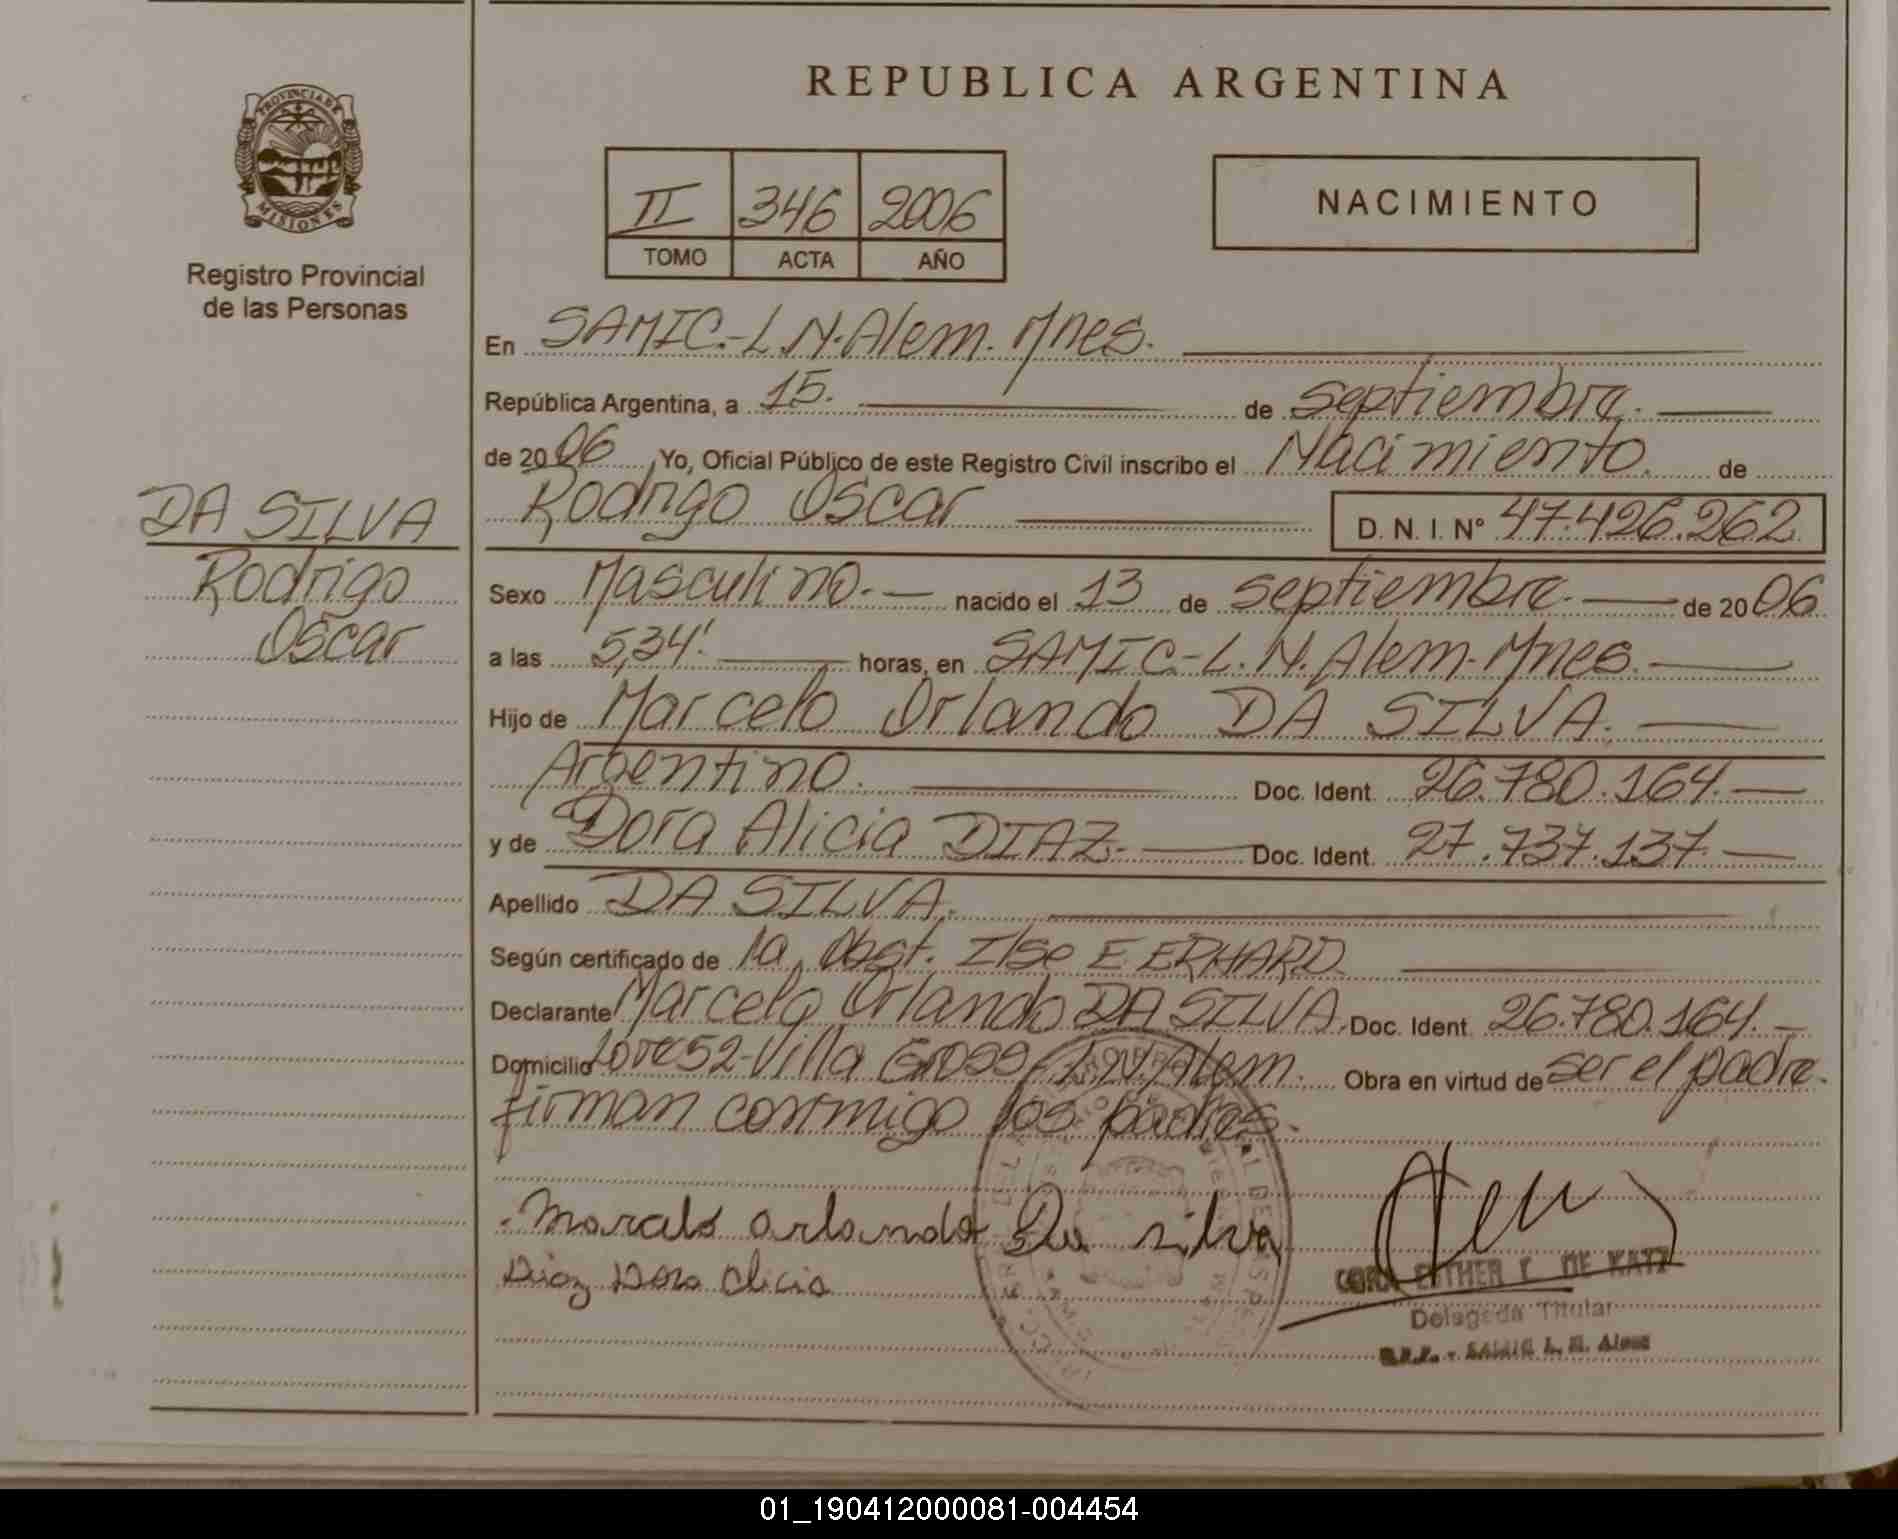 PROVINCIA DE
MISIONES
Registro Provincial
de las Personas
DA SILVA
Rodrigo
Oscar
REPUBLICA ARGENTINA
II 346 2006
TOMO ACTA AÑO
NACIMIENTO
En SAMIC.-L.N.Alem. Mnes.
República Argentina, a 15. de septiembre.
de 2006 Yo, Oficial Público de este Registro Civil inscribo el Nacimiento. de
Rodrigo Oscar D. N. I. Nº 47.426.262
Sexo Masculino.- nacido el 13 de septiembre. de 2006
a las 5,34'. horas, en SAMIC.-L.N.Alem.Mnes.
Hijo de Marcelo Orlando DA SILVA.
Argentino. Doc. Ident. 26.780.164.
y de Dora Alicia DIAZ. Doc. Ident. 27.737.137.
Apellido DA SILVA.
Según certificado de la Obst. Ilse E ERHARD
Declarante Marcelo Orlando DA SILVA. Doc. Ident. 26.780.164.
Domicilio Lote 52-Villa L.N.Alem. Obra en virtud de ser el padre.
firman conmigo los padres.
Marcelo Orlando Da silva
Diaz Dora Alicia
ESTHER DE KATZ
Delegada Titular
SAMIC L. N. Alem
01_190412000081-004454